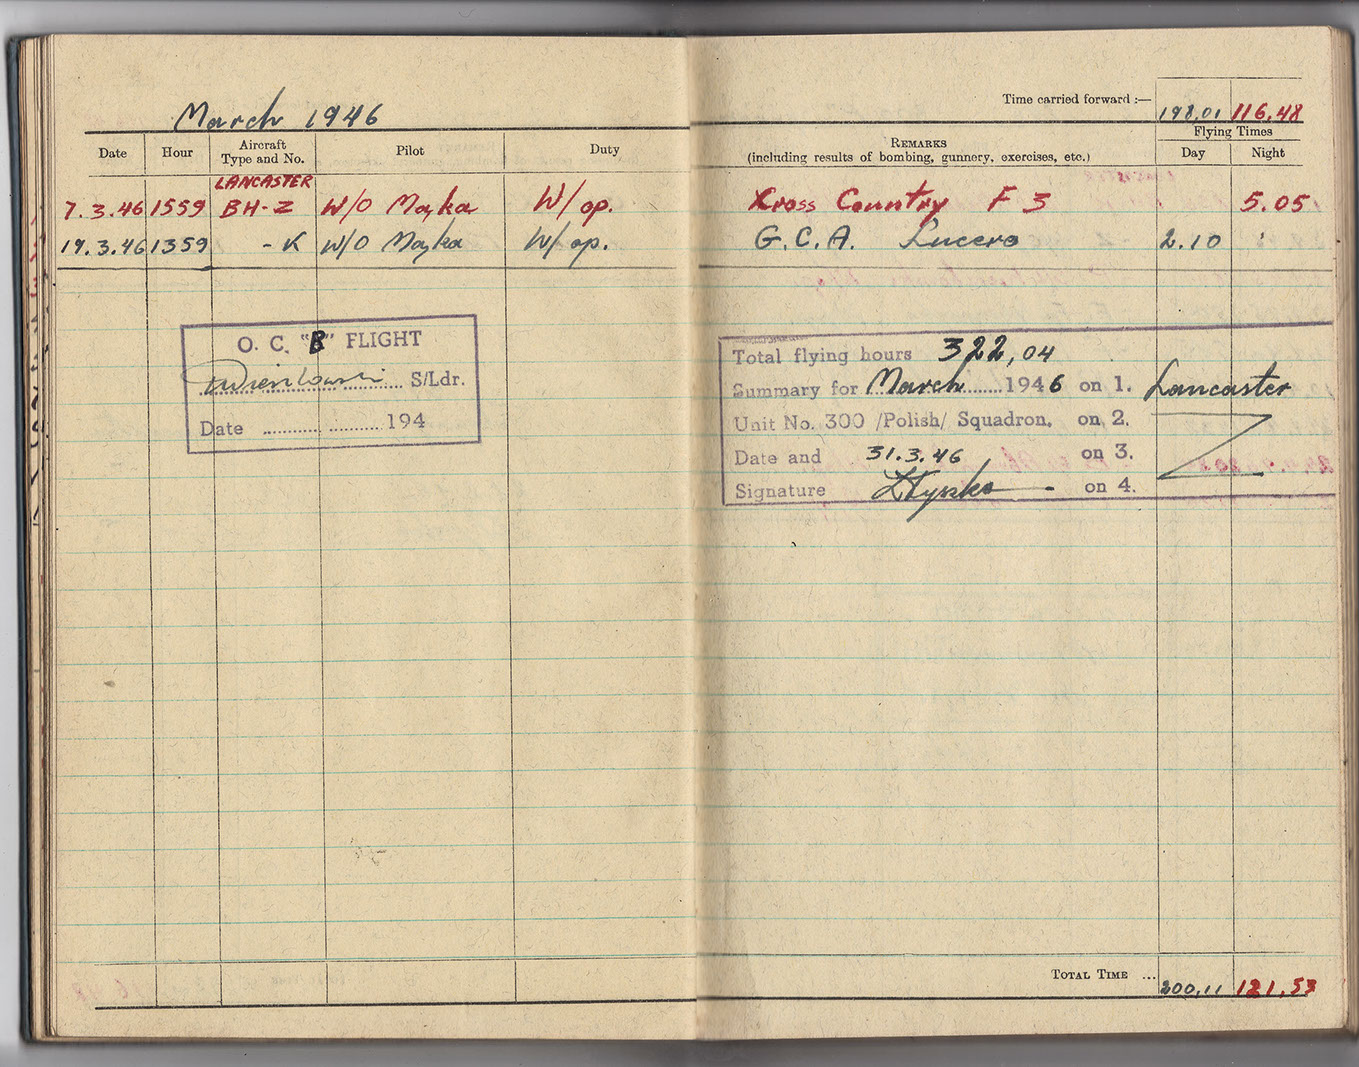 March 1946
Time carried forward :— 198,01 116,48
Date Hour Aircraft Type and No. Pilot Duty
REMARKS (including results of bombing, gunnery, exercises, etc.)
Flying Times
Day Night
LANCASTER
7.3.46 1559 BH-Z W/O Mayka W/op. Cross Country F 3 5.05
19.3.46 1359 -K W/O Mayka W/op. G.C.A. Lucero 2.10
O. C. "B" FLIGHT
S/Ldr.
Date .................... 194
Total flying hours 322,04
Summary for March 1946 on 1. Lancaster
Unit No. 300 /Polish/ Squadron. on 2.
Date and 31.3.46 on 3.
Signature on 4.
TOTAL TIME ... 200,11 121,53